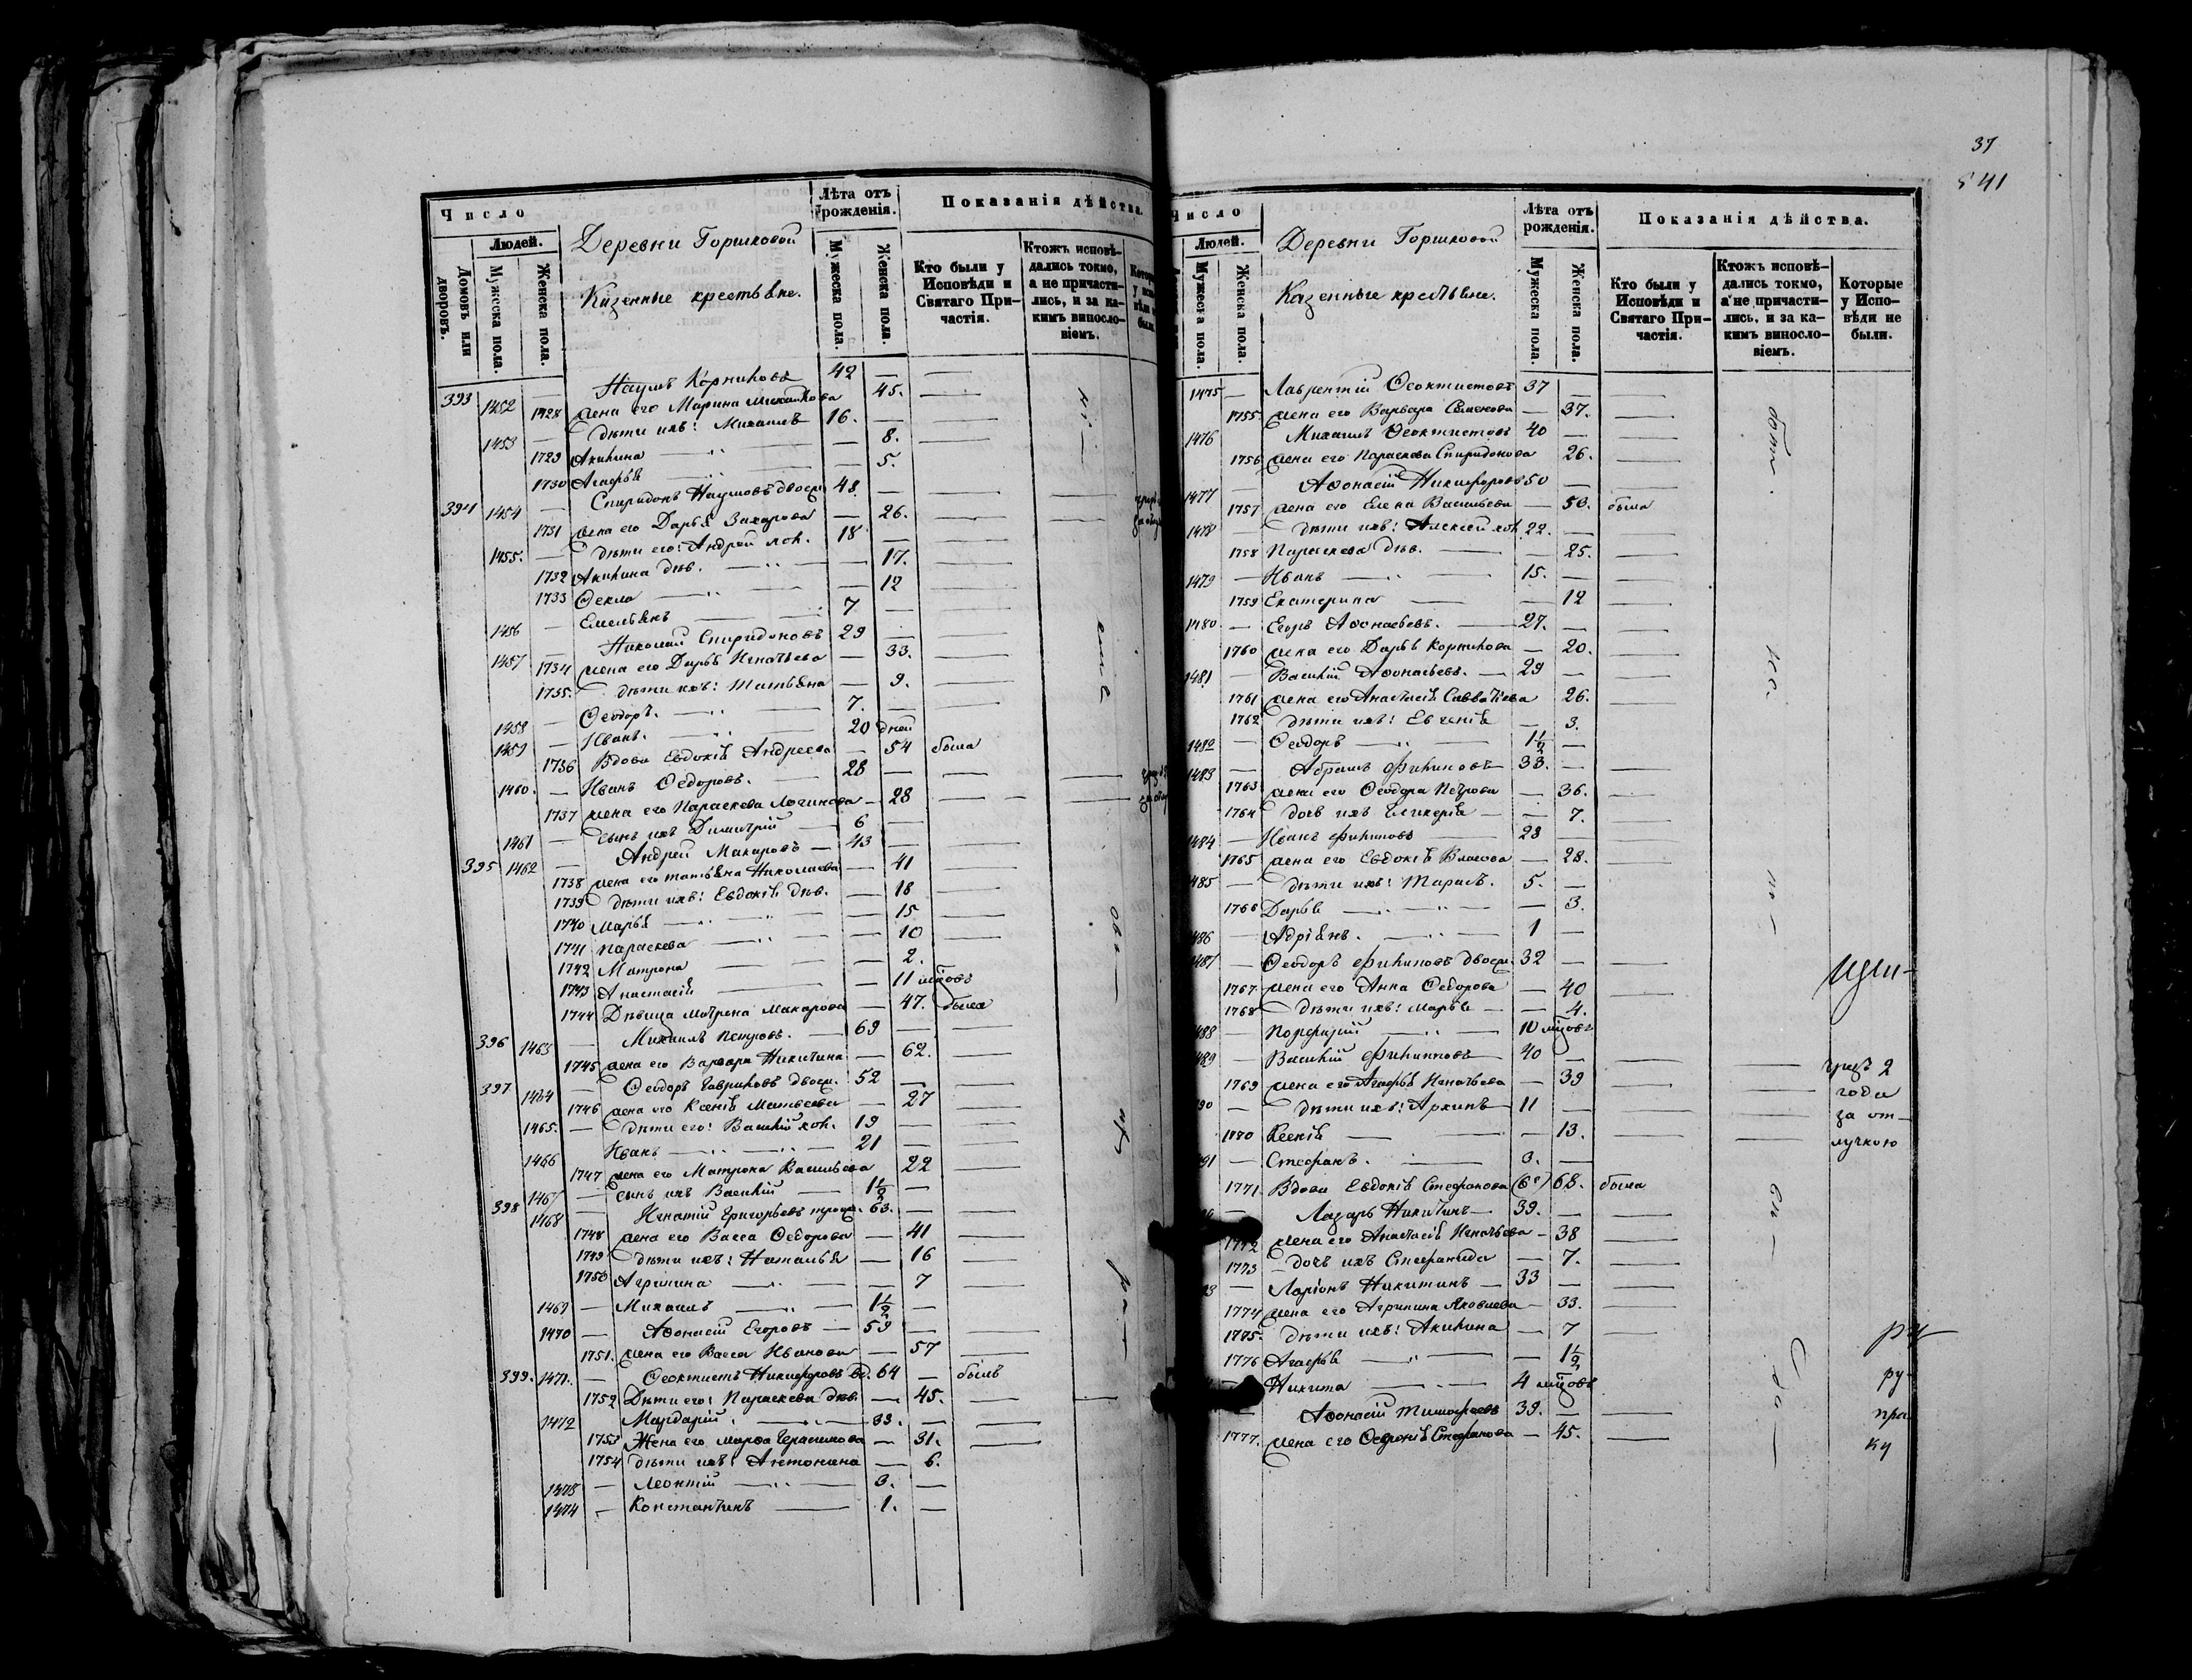 37
541
Число
Людей.
Домовъ или дворовъ.
Мужеска пола.
Женска пола.
Деревни Горшковой
Казенные крестьяне.
Лѣта отъ рожденія.
Мужеска пола.
Женска пола.
Показанія дѣйства.
Кто были у Исповѣди и Святаго Причастія.
Ктожъ исповѣдались токмо, а не причастились, и за какимъ винословіемъ.
393 1452 — Наумъ Корниловъ 42 —
1728 жена его Марина Михайлова — 45.
1453 — дѣти ихъ: Михаилъ 16. —
1729 Акилина — 8.
1730 Агафья — 5.
394 1454 — Спиридонъ Наумовъ двоеж. 48. —
1731 жена его Дарья Захарова — 26.
1455. — дѣти его: Андрей хол. 18. —
1732 Акилина дѣв. — 17.
1733 Ѳекла — 12
1456 — Емельянъ 7 —
1457 — Николай Спиридоновъ 29 —
1734 жена его Дарья Игнатьева — 33.
1735. дѣти ихъ: Татьяна — 9.
1458 — Ѳеодоръ. 7. —
1459 — Иванъ. 20 дней
1736 Вдова Евдокія Андреева — 54 была
1460. — Иванъ Ѳедоровъ. 28 —
1737 жена его Параскева Логинова — 28
1461 — сынъ ихъ Димитрій 6 —
395 1462 — Андрей Макаровъ — 43 —
1738 жена его Татьяна Николаева — 41
1739 дѣти ихъ: Евдокія дѣв. — 18
1740 Марья — 15
1741 Параскева — 10
1742 Матрона — 2.
1743 Анастасія — 11 мѣсяцовъ
1744 Дѣвица Матрона Макарова — 47. была
396 1463 — Михаилъ Петровъ. — 69 —
1745 жена его Варвара Никитина — 62.
397 1464 — Ѳеодоръ Гавриловъ двоеж. 52 —
1746 жена его Ксенія Матвѣева — 27
1465. — дѣти его: Василій хол. 19 —
1466 Иванъ 21 —
1747 жена его Матрона Васильева 22
1467 — сынъ ихъ Василій 1½ —
398 1468 — Игнатій Григорьевъ троеж. 63. —
1748 жена его Васса Ѳедорова — 41
1749 дѣти ихъ: Наталья — 16
1750 Агрипина — 7
1469 — Михаилъ 1½ —
1470 — Аѳонасій Егоровъ — 59 —
1751. жена его Васса Иванова — 57
399. 1471. — Ѳеоктистъ Никифоровъ вд. 64 — былъ
1752 Дѣти его: Параскева дѣв. — 45.
1472 Мардарій. 33. —
1753 Жена его Марѳа Герасимова — 31.
1754 дѣти ихъ: Антонина — 6.
1473 — Леонтій 3. —
1474 — Константинъ 1. —
Число
Людей.
Мужеска пола.
Женска пола.
Деревни Горшковой
Казенные крестьяне.
Лѣта отъ рожденія.
Мужеска пола.
Женска пола.
Показанія дѣйства.
Кто были у Исповѣди и Святаго Причастія.
Ктожъ исповѣдались токмо, а не причастились, и за какимъ винословіемъ.
Которые у Исповѣди не были.
1475 — Лаврентій Ѳеоктистовъ 37 —
1755. жена его Варвара Семенова — 37.
1476 Михаилъ Ѳеоктистовъ 40 —
1756 жена его Параскева Спиридонова 26.
1477 — Аѳонасій Никифоровъ 50 —
1757 жена его Елена Васильева — 50. была
1478 — дѣти ихъ: Алексей хол. 22. —
1758 Параскева дѣв. — 25.
1479 — Иванъ 15. —
1759 Екатерина — 12
1480. — Егоръ Аѳонасьевъ. 27. —
1760 жена его Дарья Корнилова — 20.
1481 — Василій Аѳонасьевъ. — 29 —
1761 жена его Анастасія Савватѣева 26.
1762 дѣти ихъ: Евгенія — 3.
1482 — Ѳеодоръ 1½ —
1483 — Абрамъ Филиповъ 33. —
1763 жена его Ѳеодора Петрова — 36.
1764 дочь ихъ Гликерія — 7.
1484 — Иванъ Филиповъ 28 —
1765 жена его Евдокія Власова — 28.
485 — дѣти ихъ: Тарасъ. 5. —
1766 Дарья — 3.
486 — Адріянъ. 1 —
487 — Ѳеодоръ Филиповъ двоеж. 32 —
1767. жена его Анна Ѳедорова — 40
1768 дѣти ихъ: Марья — 4.
488 — Порфирій 10 мѣсяцовъ
489 — Василій Филипповъ 40 —
1769 жена его Агафья Игнатьева — 39
490 — дѣти ихъ: Архипъ 11 —
1770 Ксенія — 13.
491 — Стефанъ. 3. —
1771. Вдова Евдокія Стефанова 68. была
чрезъ 2 года за отлучкою
Лазарь Никитинъ 39. —
1772 жена его Анастасія Игнатьева — 38
1773 дочь ихъ Стефанида — 7.
— Ларіонъ Никитинъ — 33 —
1774 жена его Агрипина Яковлева — 33.
1775. дѣти ихъ: Акилина — 7
1776 Агафья — 1½
Никита 4 мѣсяцовъ
— Аѳонасій Тимофеевъ 39. —
1777. жена его Ѳевронія Стефанова — 45.